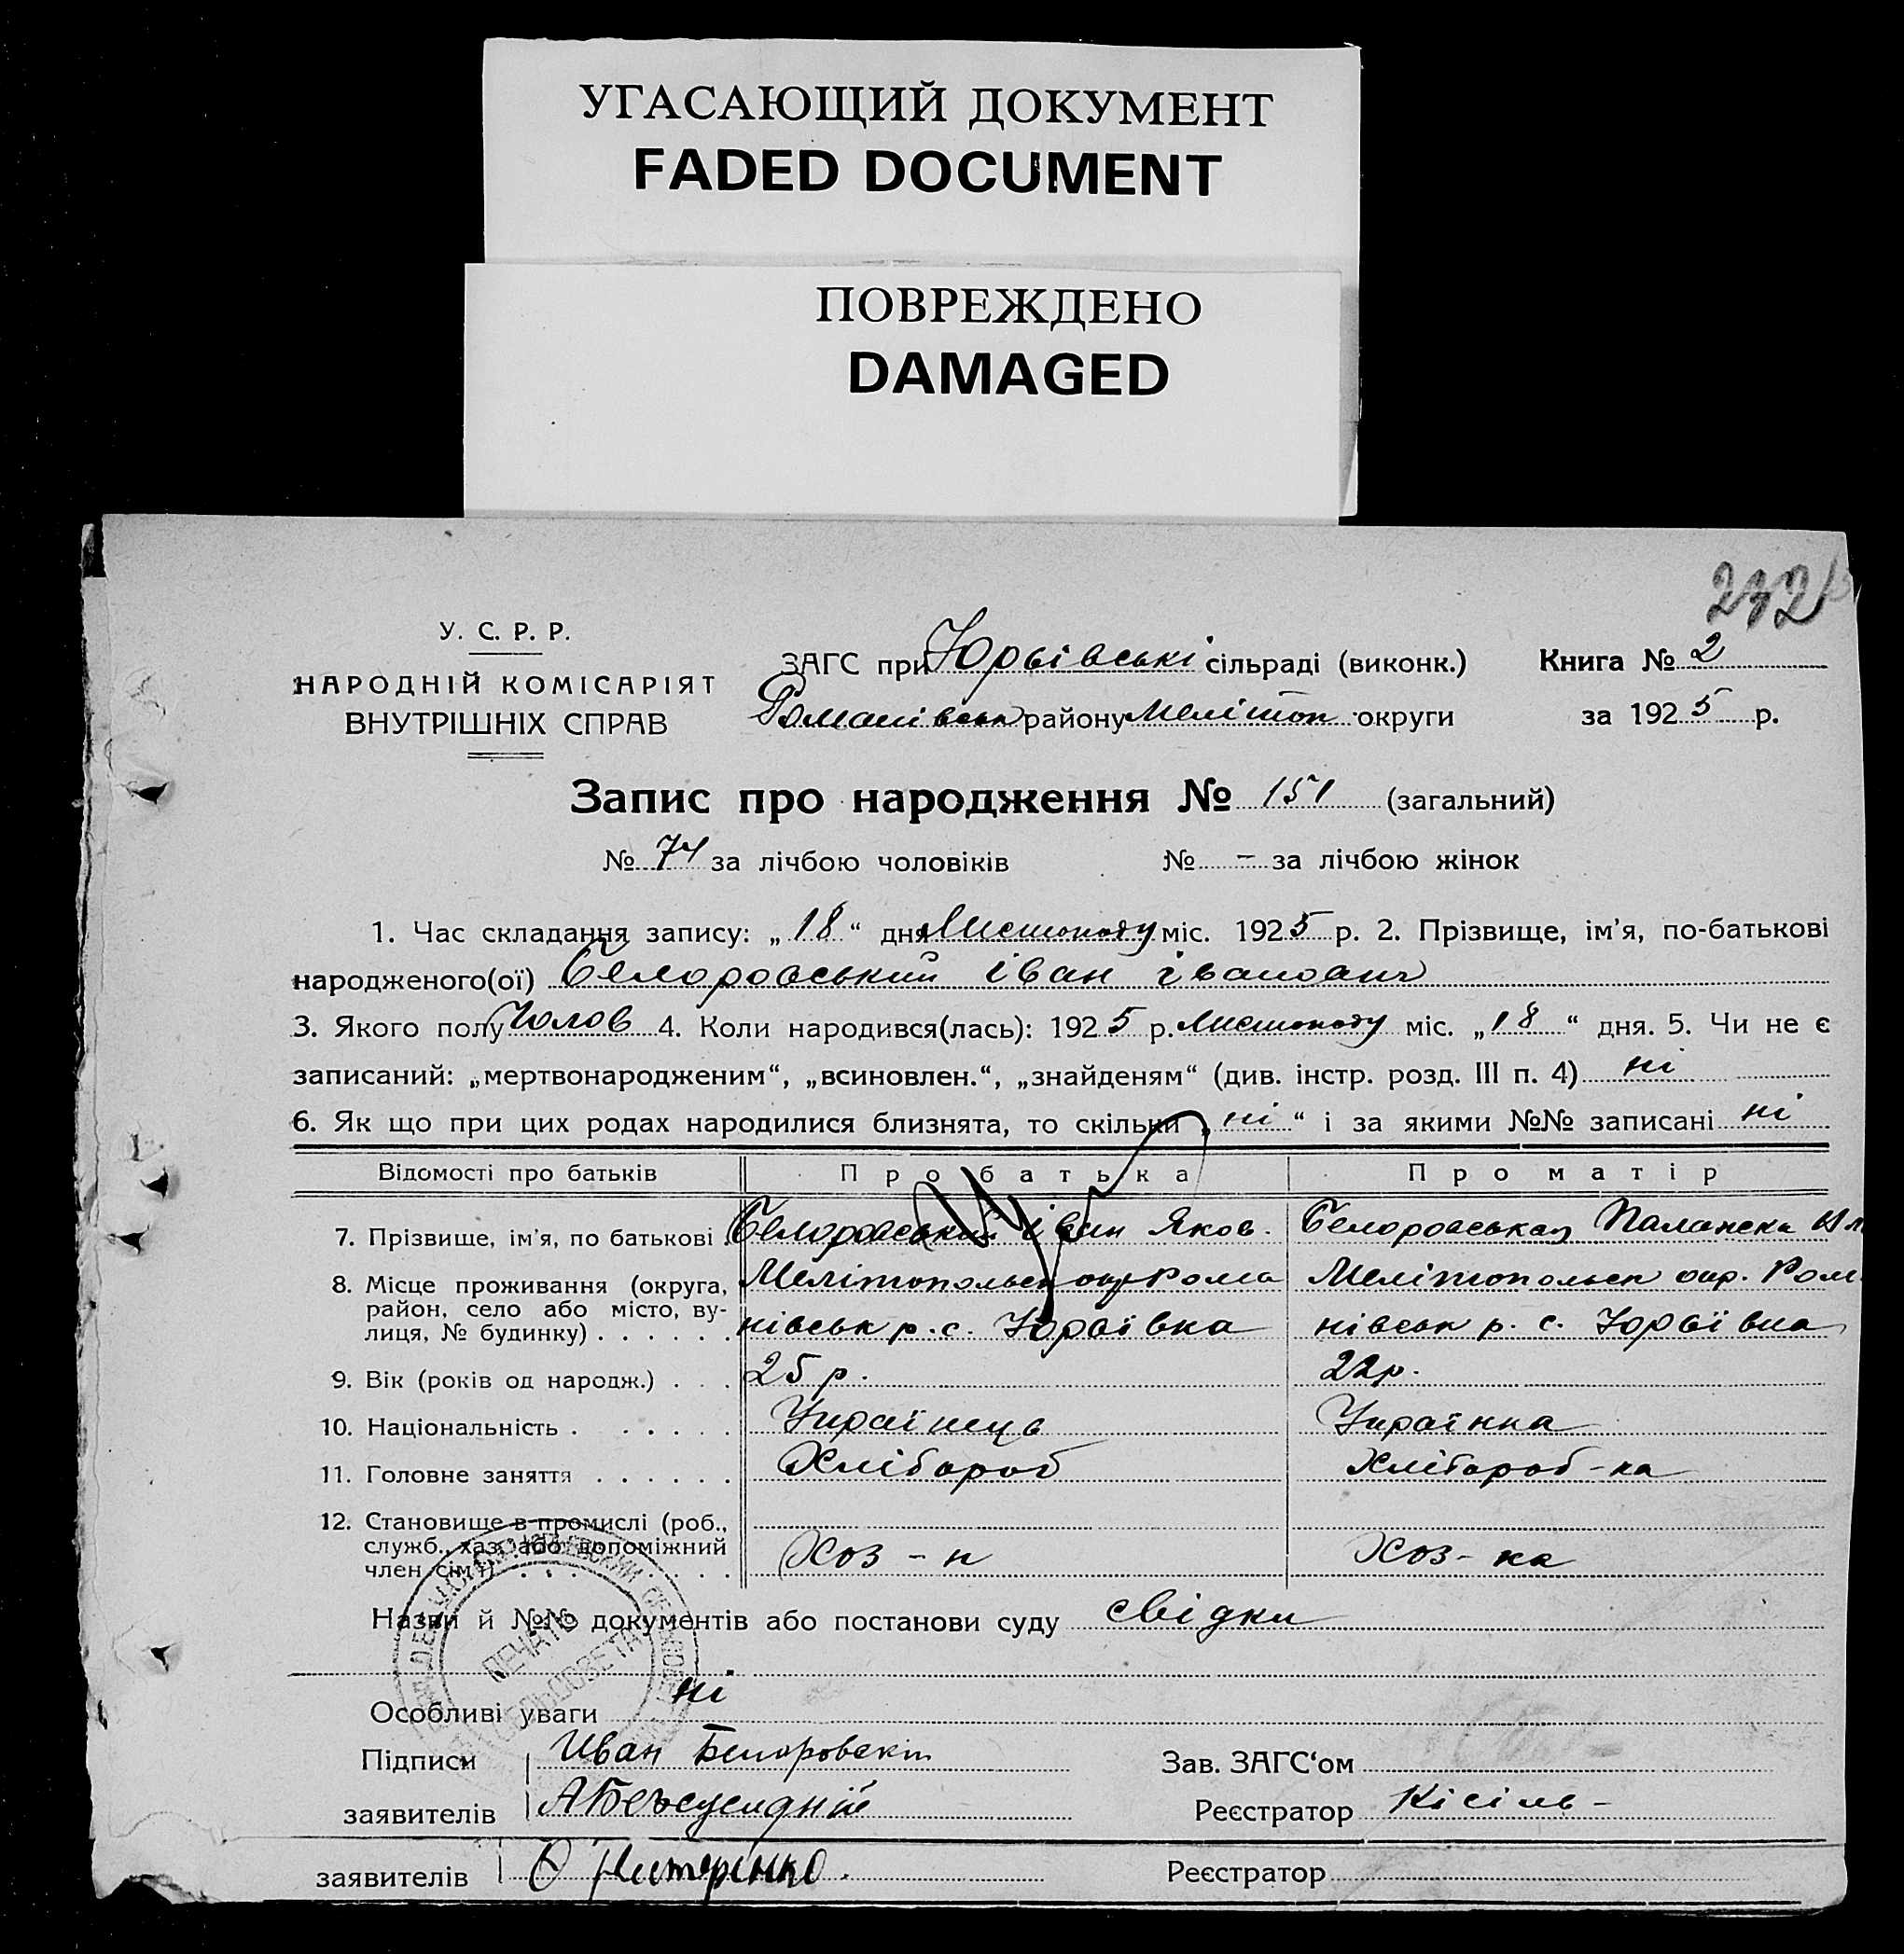 УГАСАЮЩИЙ ДОКУМЕНТ
FADED DOCUMENT
ПОВРЕЖДЕНО
DAMAGED
232
У. С. Р. Р.
НАРОДНІЙ КОМІСАРІЯТ
ВНУТРІШНІХ СПРАВ
ЗАГС при Юрьівські сільраді (виконк.) Книга № 2
Романівськ району Мелітоп округи за 1925 р.
Запис про народження № 151 (загальний)
№ 74 за лічбою чоловіків № - за лічбою жінок
1. Час складання запису: „18“ дня Листопаду міс. 1925 р. 2. Прізвище, ім’я, по-батькові
народженого(ої) Белоровський іван іванович
3. Якого полу Чолов 4. Коли народився(лась): 1925 р. Листопаду міс. „18“ дня. 5. Чи не є
записаний: „мертвонародженим“, „всиновлен.“, „знайденям“ (див. інстр. розд. III п. 4) ні
6. Як що при цих родах народилися близнята, то скільки „ні“ і за якими №№ записані ні
Відомості про батьків Про батька Про матір
7. Прізвище, ім’я, по батькові Белоровський іван Яков. Белоровськая
8. Місце проживання (округа, Мелітопольск окр Рома Мелітопольск окр. Ром
район, село або місто, ву-
лиця, № будинку) . . . . . . нівськ р. с. Юрьївка нівськ р. с. Юрьївка
9. Вік (років од народж.) . . . 25 р. 22 р.
10. Національність . . . . . . Українець Українка
11. Головне заняття . . . . . . Хлібороб Хлібороб-ка
12. Становище в промислі (роб.,
служб., хаз. або допоміжний Хоз - н Хоз - ка
член сім’ї) . . . . . . . .
ПЕЧАТЬ
СЕЛЬСОВЕТА
Назви й №№ документів або постанови суду свідки
Особливі уваги ні
Підписи Иван Белоровскій Зав. ЗАГС‘ом
заявителів Реєстратор Кісіль -
заявителів Реєстратор